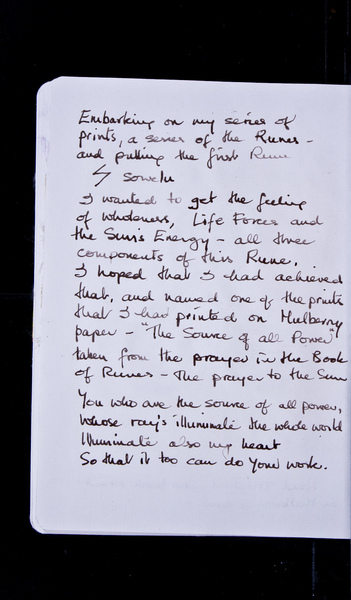 Embarking on my series of
prints, a series of the Runes –
and pulling the first Rune
ᛋ Sowelu
I wanted to get the feeling
of wholeness, Life Forces and
the Sun's Energy – all three
components of this Rune.
I hoped that I had achieved
that, and named one of the prints
that I had printed on Mulberry
paper – "The Source of all Power"
taken from the prayer in the Book
of Runes – The prayer to the Sun
You who are the source of all power,
whose ray's illuminate the whole world
Illuminate also my heart
So that it too can do your work.